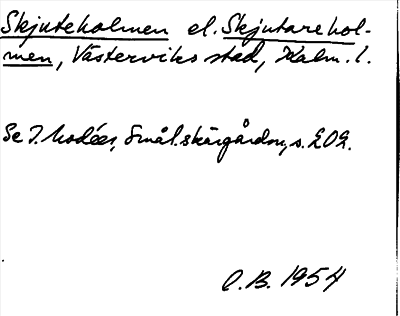 Skjuteholmen el. Skjutarehol-
men, Västerviks stad, Kalm. l.
Se I. Modéer, Smål. skärgårdsn, s. 202.
C. B. 1954